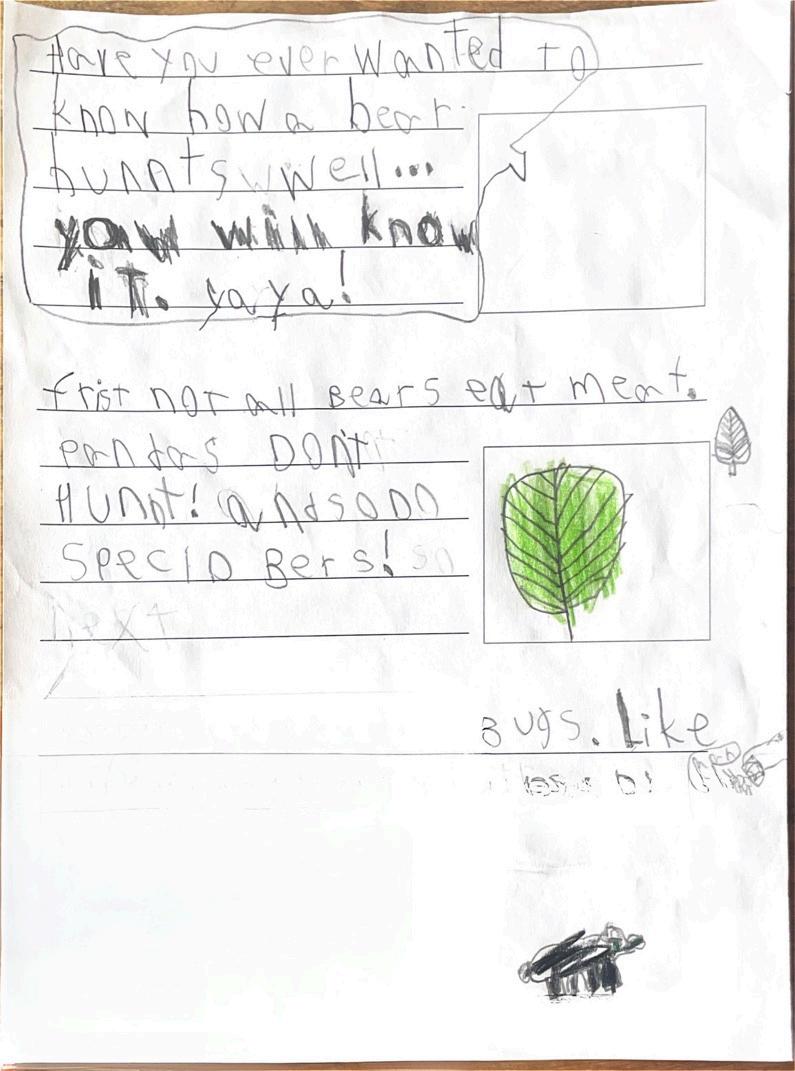 Have you ever wanted to
know how a bear
hunnts well...
yow will know
it. yaya!
frist not all Bears eat meat.
pandas DONt
HUNnt! and so DO
SpeciD Bers! so
next
BUgs. Like